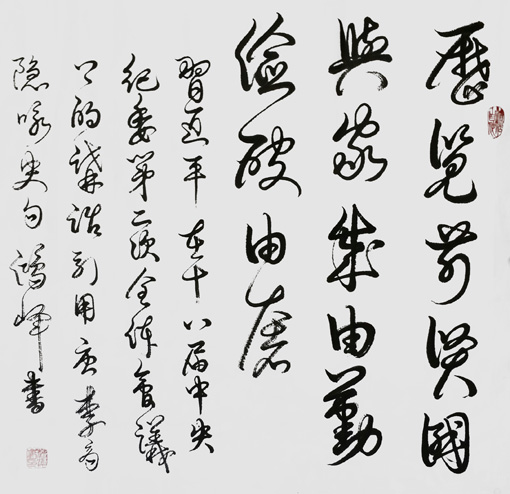 歷覽前賢國
與家成由勤
儉破由奢
習近平在十八届中央
纪委第二次全体會議
上的講話引用唐李商
隐咏史句 鴻峰書